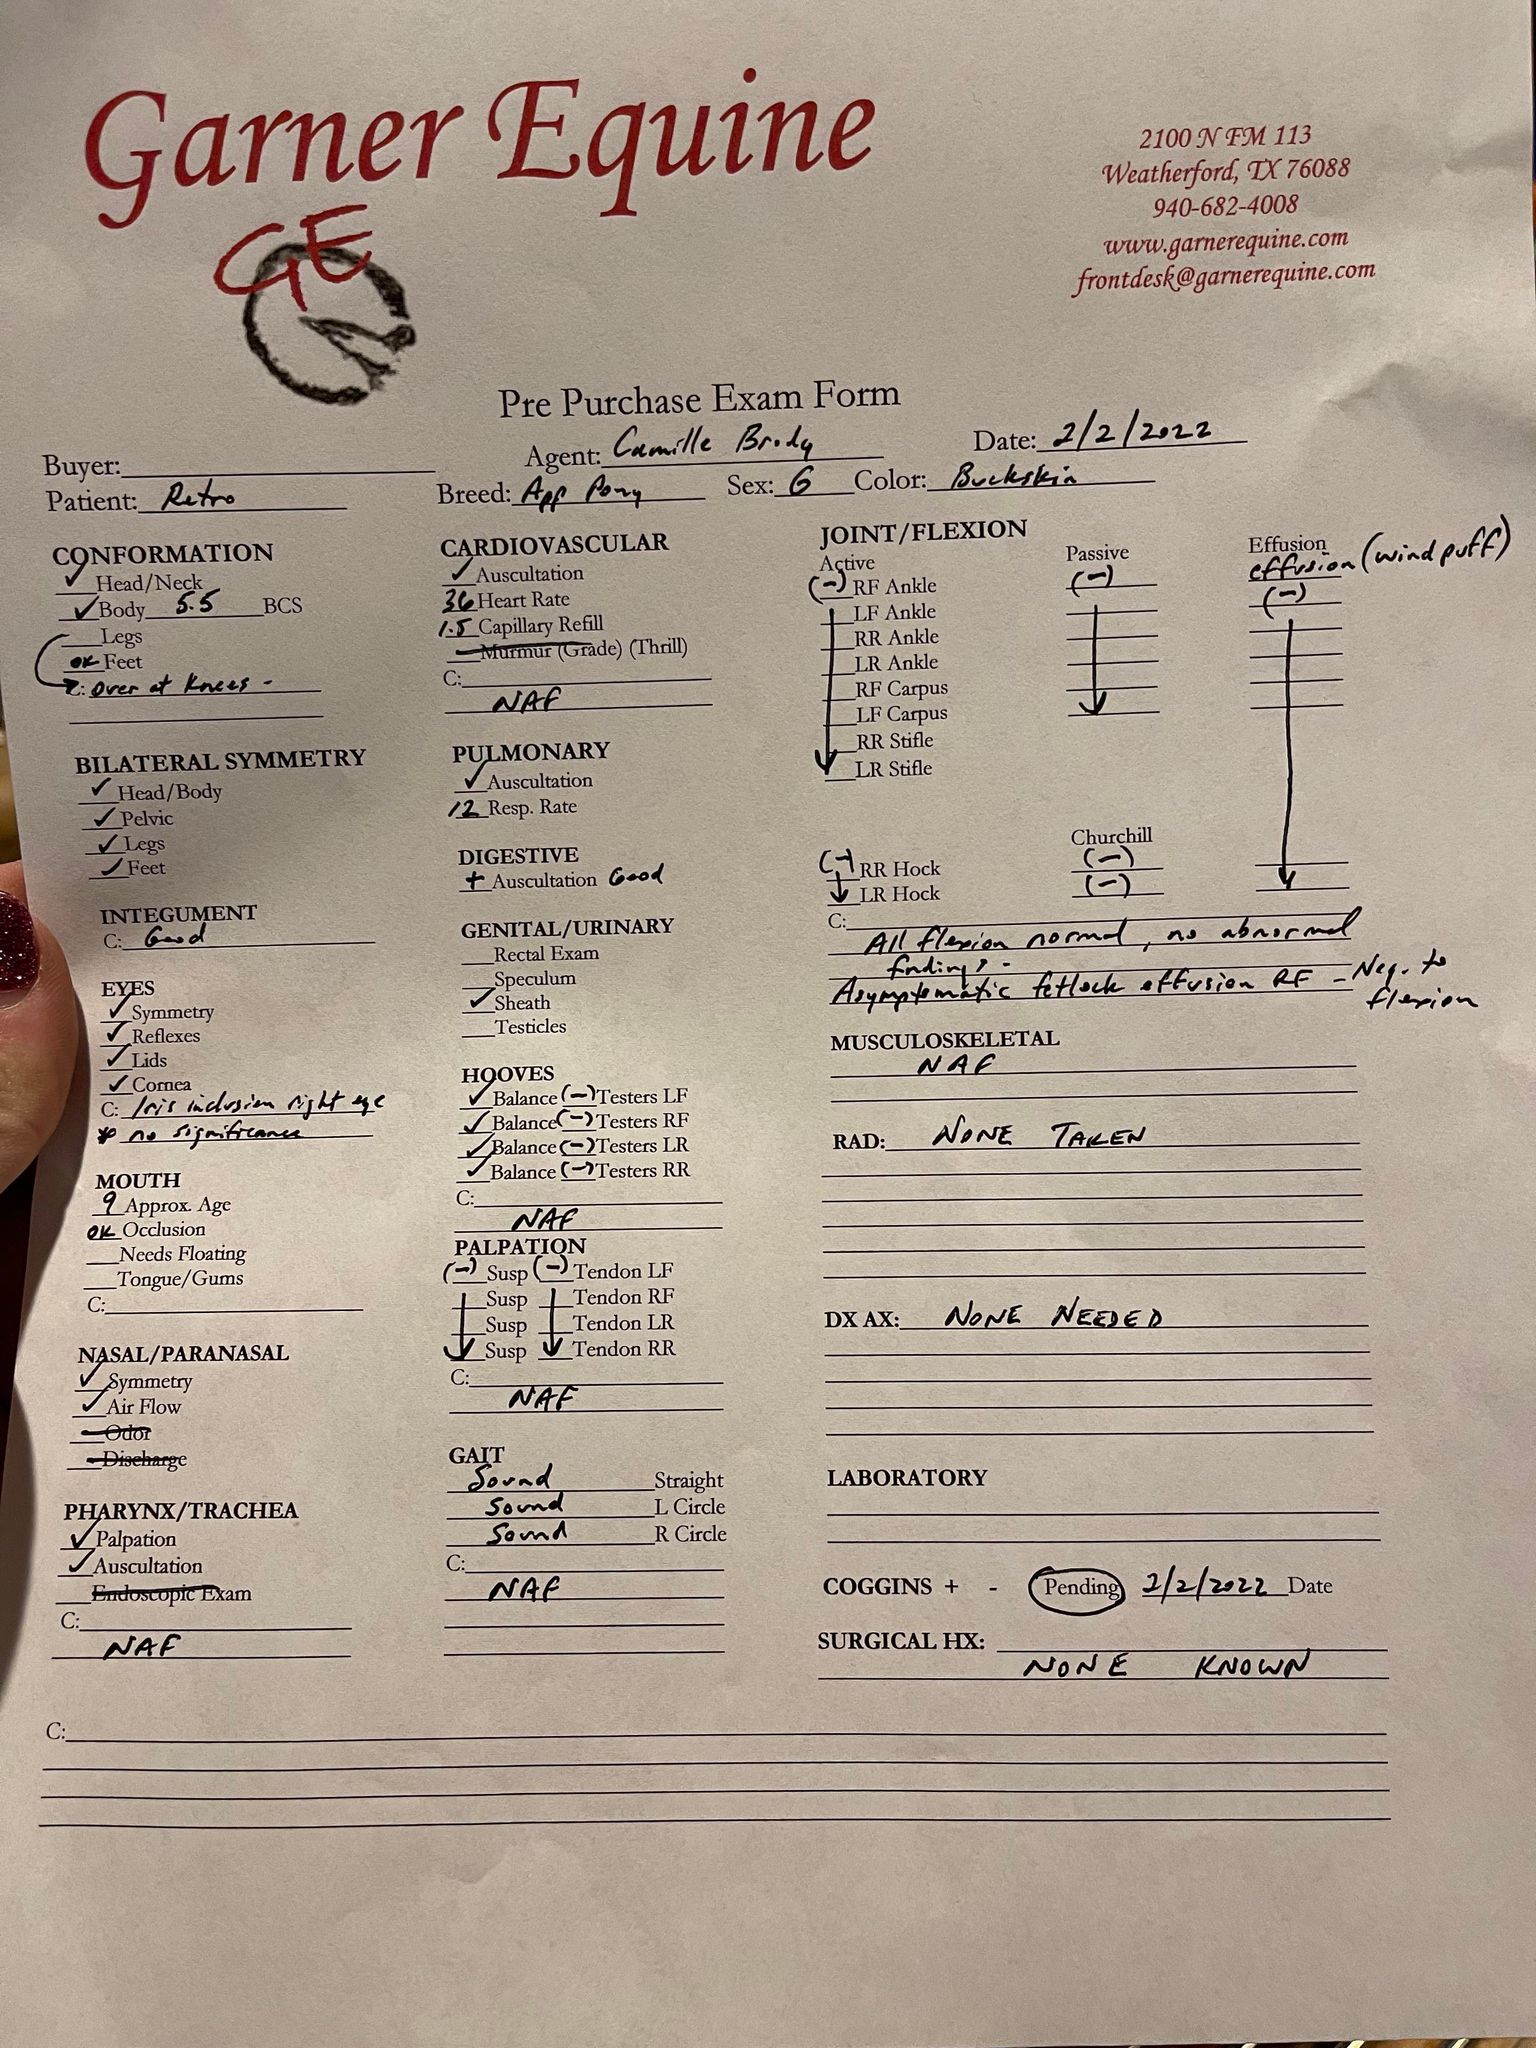 Garner Equine
GE
2100 N FM 113
Weatherford, TX 76088
940-682-4008
www.garnerequine.com
frontdesk@garnerequine.com
Pre Purchase Exam Form
Buyer: Agent: Camille Brody Date: 2/2/2022
Patient: Retro Breed: App Pony Sex: G Color: Buckskin
CONFORMATION
✓ Head/Neck
✓ Body 5.5 BCS
Legs
ok Feet
C: over at knees -
BILATERAL SYMMETRY
✓ Head/Body
✓ Pelvic
✓ Legs
✓ Feet
INTEGUMENT
C: Good
EYES
✓ Symmetry
✓ Reflexes
✓ Lids
✓ Cornea
C: Iris inclusion right eye
* no significance
MOUTH
9 Approx. Age
OK Occlusion
Needs Floating
Tongue/Gums
C:
NASAL/PARANASAL
✓ Symmetry
✓ Air Flow
Odor
Discharge
PHARYNX/TRACHEA
✓ Palpation
✓ Auscultation
Endoscopic Exam
C:
NAF
CARDIOVASCULAR
✓ Auscultation
36 Heart Rate
1.5 Capillary Refill
Murmur (Grade) (Thrill)
C:
NAF
PULMONARY
✓ Auscultation
12 Resp. Rate
DIGESTIVE
+ Auscultation Good
GENITAL/URINARY
Rectal Exam
Speculum
✓ Sheath
Testicles
HOOVES
✓ Balance (-) Testers LF
✓ Balance (-) Testers RF
✓ Balance (-) Testers LR
✓ Balance (-) Testers RR
C:
NAF
PALPATION
(-) Susp (-) Tendon LF
Susp Tendon RF
Susp Tendon LR
Susp Tendon RR
C:
NAF
GAIT
Sound Straight
Sound L Circle
Sound R Circle
C:
NAF
JOINT/FLEXION
Active Passive Effusion
effusion (wind puff)
(-) RF Ankle (-)
LF Ankle (-)
RR Ankle
LR Ankle
RF Carpus
LF Carpus
RR Stifle
LR Stifle
Churchill
(-) RR Hock (-)
LR Hock (-)
C:
All flexion normal, no abnormal
findings -
Asymptomatic fetlock effusion RF - Neg. to
flexion
MUSCULOSKELETAL
NAF
RAD: NONE TAKEN
DX AX: NONE NEEDED
LABORATORY
COGGINS + - Pending 2/2/2022 Date
SURGICAL HX:
NONE KNOWN
C: